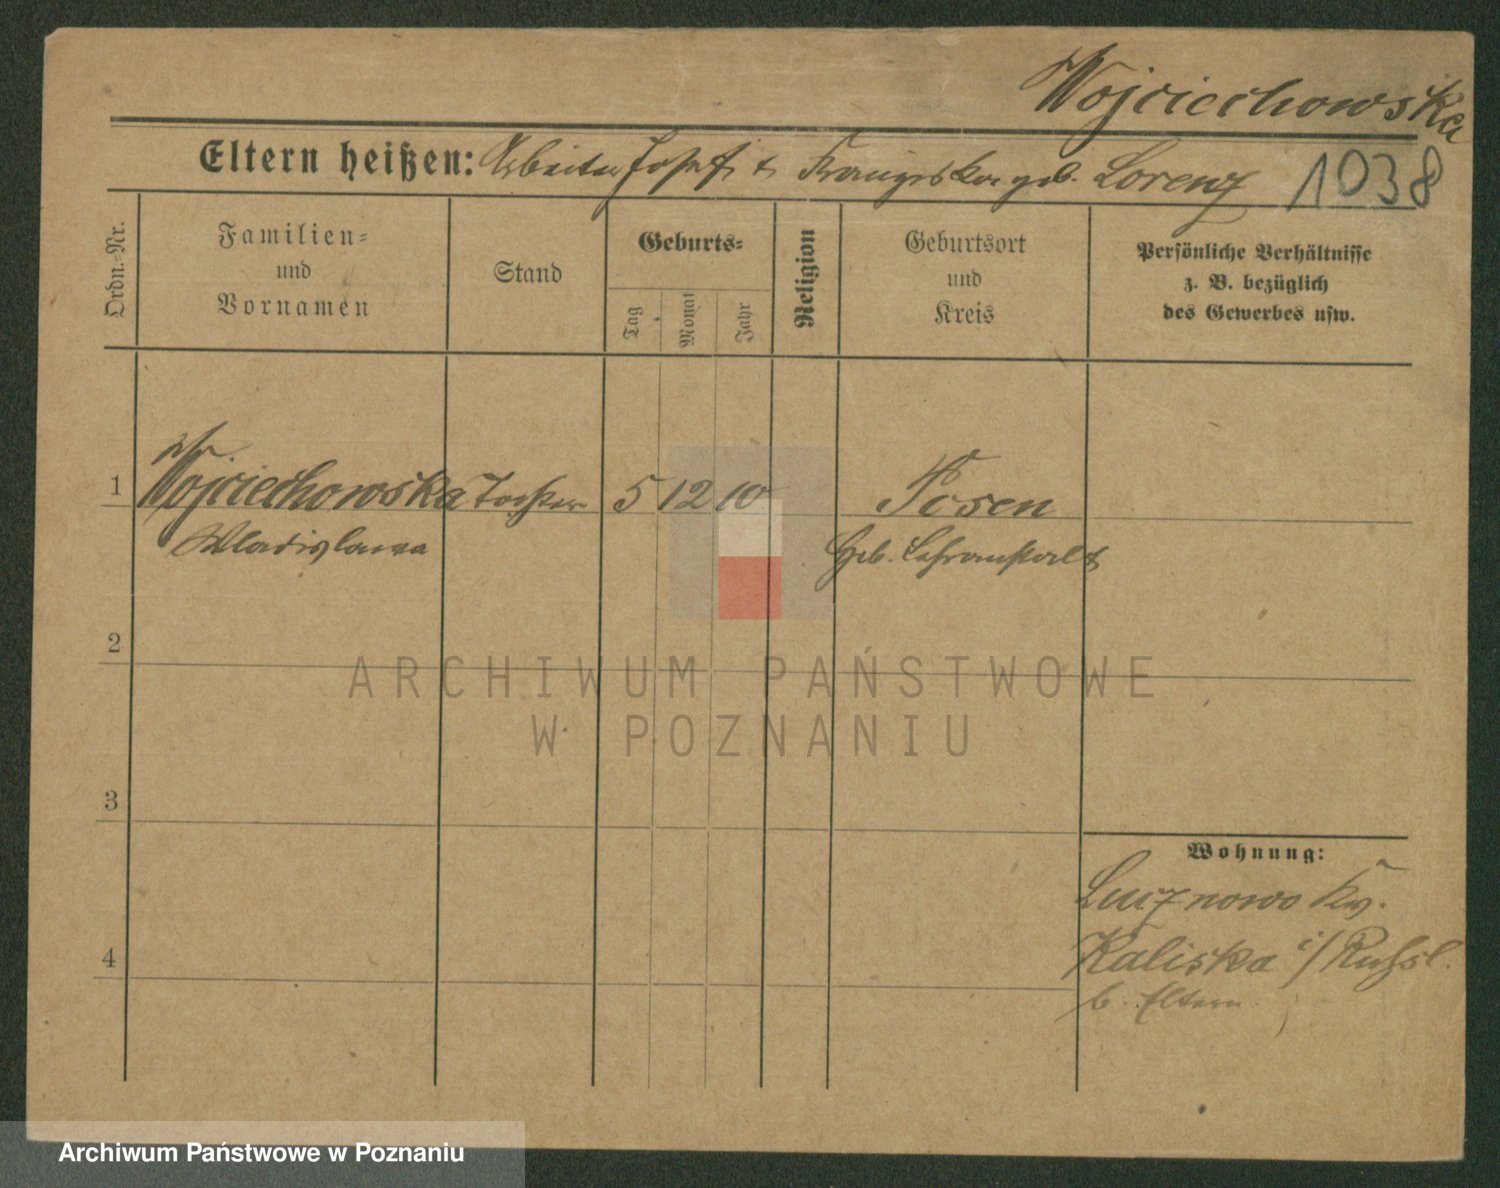 Wojciechowska
Eltern heißen: Arbeiter Josef & Franziska geb. Lorenz 1038
Ordn.-Nr.
Familien-
und
Vornamen
Stand
Geburts-
Tag
Monat
Jahr
Religion
Geburtsort
und
Kreis
Persönliche Verhältnisse
z. B. bezüglich
des Gewerbes usw.
1 Wojciechowska Tochter 5 12 10 Posen
Wladislawa Heb. Lehranstalt
2
ARCHIWUM PAŃSTWOWE
W POZNANIU
3
Wohnung:
Kr.
4 Kaliska i/ Rußl.
b. Eltern
Archiwum Państwowe w Poznaniu